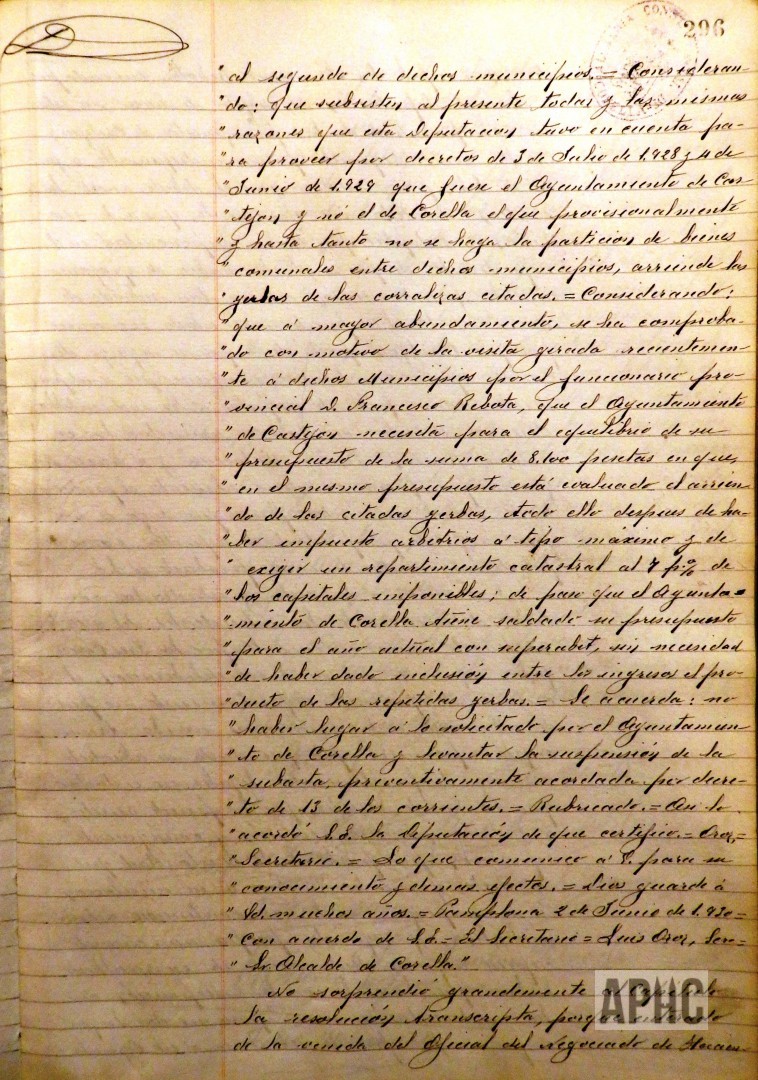 296
" al segundo de dichos municipios. = Consideran-
" do: que subsisten al presente todas y las mismas
" razones que esta Diputacion tuvo en cuenta pa-
" ra proveer por decretos de 3 de Julio de 1.928 y 4 de
" Junio de 1.929 que fuere el Ayuntamiento de Cas-
" tejon y nó el de Corella el que provisionalmente
" y hasta tanto no se haga la particion de bienes
" comunales entre dichos municipios, arriende las
" yerbas de las corralizas citadas. = Considerando:
" que á mayor abundamiento, se ha comproba-
" do con motivo de la visita girada recientemen-
" te á dichos Municipios por el funcionario pro-
" vincial D. Francisco Rebota, que el Ayuntamiento
" de Castejon necesita para el equilibrio de su
" presupuesto de la suma de 8.100 pesetas en que,
" en el mismo presupuesto está evaluado el arrien-
" do de las citadas yerbas, todo ello despues de ha-
" ber impuesto arbitrios á tipo máximo y de
" exigir un repartimiento catastral al 7 p.% de
" los capitales imponibles; de paso que el Ayunta=
" miento de Corella tiene saldado su presupuesto
" para el año actual con superabit, sin necesidad
" de haber dado inclusión entre los ingresos el pro-
" ducto de las repetidas yerbas. = Se acuerda: no
" haber lugar á lo solicitado por el Ayuntamien-
" to de Corella y levantar la suspensión de la
" subasta, preventivamente acordada por decre-
" to de 13 de los corrientes. = Rubricado. = Asi lo
" acordó S.E. la Diputación de que certifico. = Oroz, =
" Secretario. = Lo que comunico á V. para su
" conocimiento y demas efectos. = Dios guarde á
" Vd. muchos años. = Pamplona 2 de Junio de 1.930 =
" Con acuerdo de S.E. = El Secretario = Luis Oroz, Srio =
" Sr. Alcalde de Corella."
No sorprendió grandemente al
la resolución transcripta, porque
de la venida del Oficial del Negociado de Hacien-
APHC